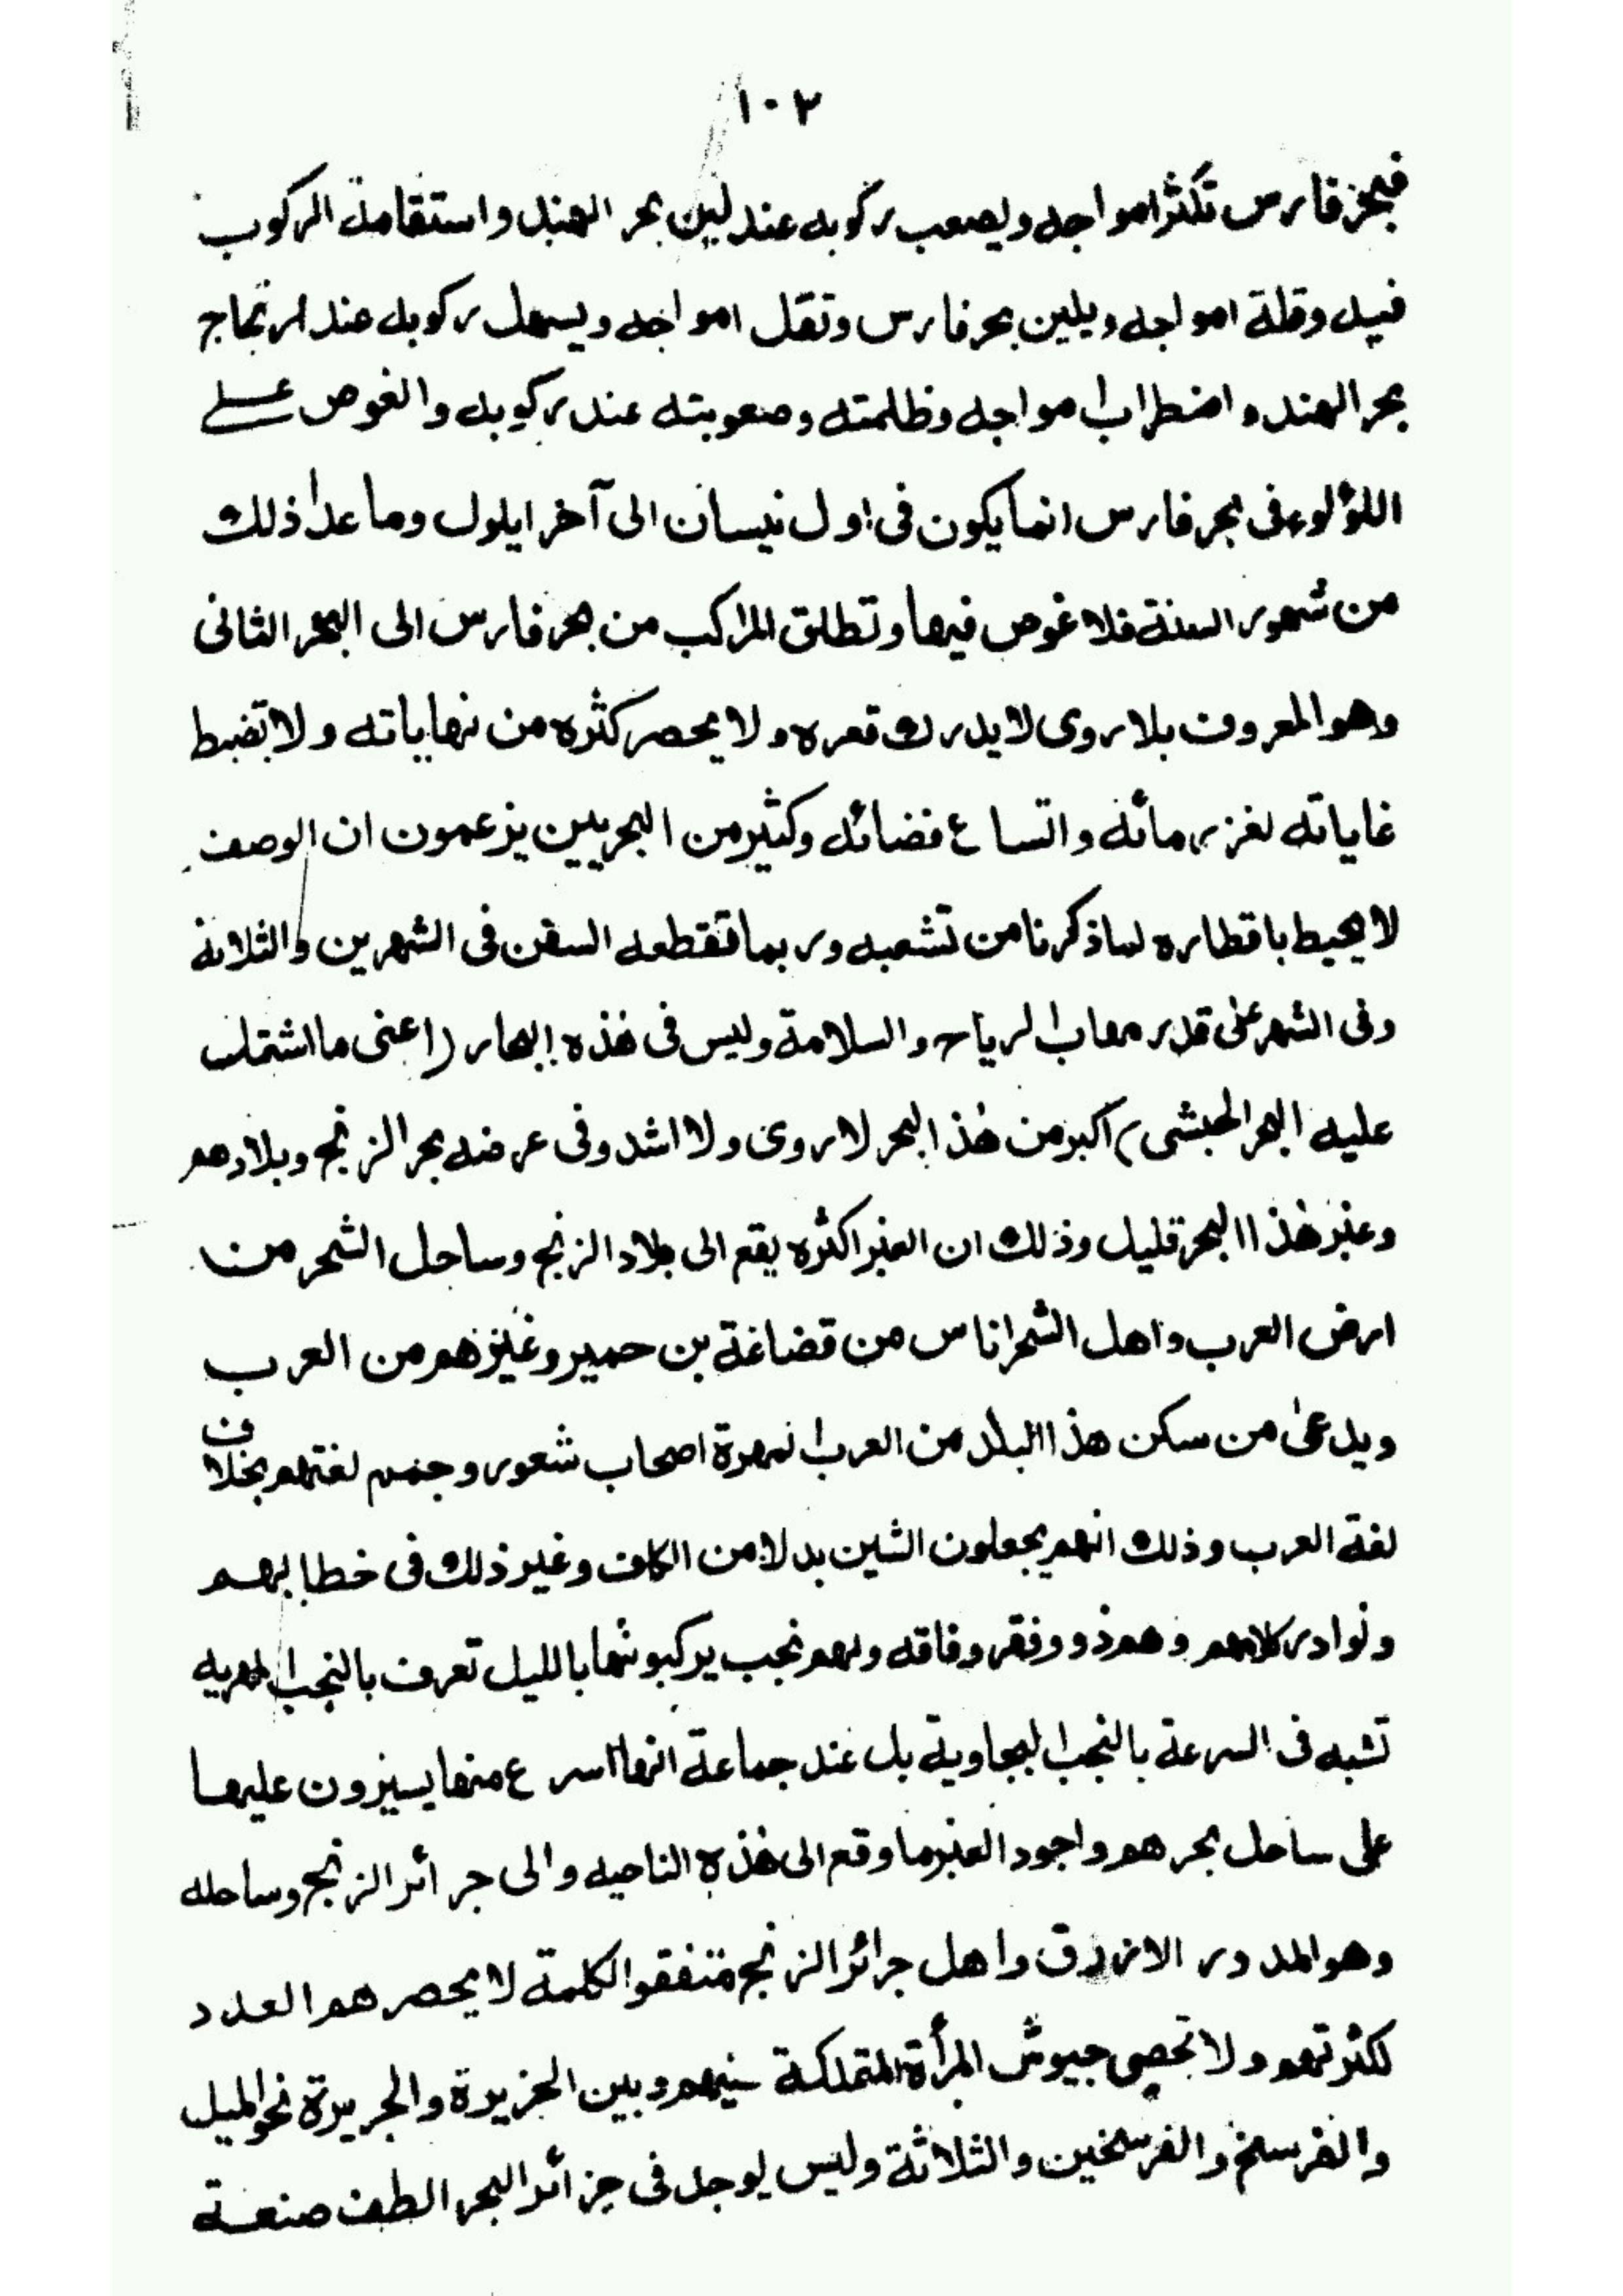 ١٠٢
فبحر فارس تكثر امواجه ويصعب ركوبه عند لين بحر الهند واستقامة الركوب
فيه وقلة امواجه ويلين بحر فارس وتقل امواجه ويسهل ركوبه عند ارتجاج
بحر الهند واضطراب امواجه وظلمته وصعوبته عند ركوبه والغوص على
اللؤلوء فى بحر فارس انما يكون فى اول نيسان الى آخر ايلول وما عدا ذلك
من شهور السنة فلا غوص فيها وتطلق المراكب من بحر فارس الى البحر الثانى
وهو المعروف بلاروى لا يدرك قعره ولا يحصر كثره من نهاياته ولا تضبط
غاياته لغزر مائه واتساع فضائه وكثير من البحريين يزعمون ان الوصف
لا يحيط باقطاره لما ذكرنا من تشعبه وربما تقطعه السفن فى الشهرين والثلاثة
وفى الشهر على قدر مهاب الرياح والسلامة وليس فى هذه البحار (اعنى ما اشتملت
عليه البحر الحبشى) اكبر من هذ البحر لاروى ولا اشد وفى عرضه بحر الزنج وبلادهم
وعنبر هذا البحر قليل وذلك ان العنبر اكثره يقع الى بلاد الزنج وساحل الشحر من
ارض العرب واهل الشحر اناس من قضاعة بن حمير وغيرهم من العرب
ويدعى من سكن هذا البلد من العرب المهرة اصحاب شعور وجمم لغتهم بخلاف
لغة العرب وذلك انهم يجعلون الشين بدلا من الكاف وغير ذلك فى خطابهم
ونوادر كلامهم وهم ذوو فقر وفاقه ولهم نجب يركبونها بالليل تعرف بالنجب المهريه
تشبه فى السرعة بالنجب البجاوية بل عند جماعة انها اسرع منها يسيرون عليها
على ساحل بحرهم واجود العنبر ما وقع الى هذه الناحيه والى جرائر الزنج وساحله
وهو المدور الازرق واهل جرائر الزنج متفقوا الكلمة لا يحصرهم العدد
لكثرتهم ولا تحصى جيوش المرأة المتملكة بينهم وبين الجزيرة والجريرة نحو الميل
والفرسخ والفرسخين والثلاثة وليس يوجد فى جزائر البحر الطف صنعة